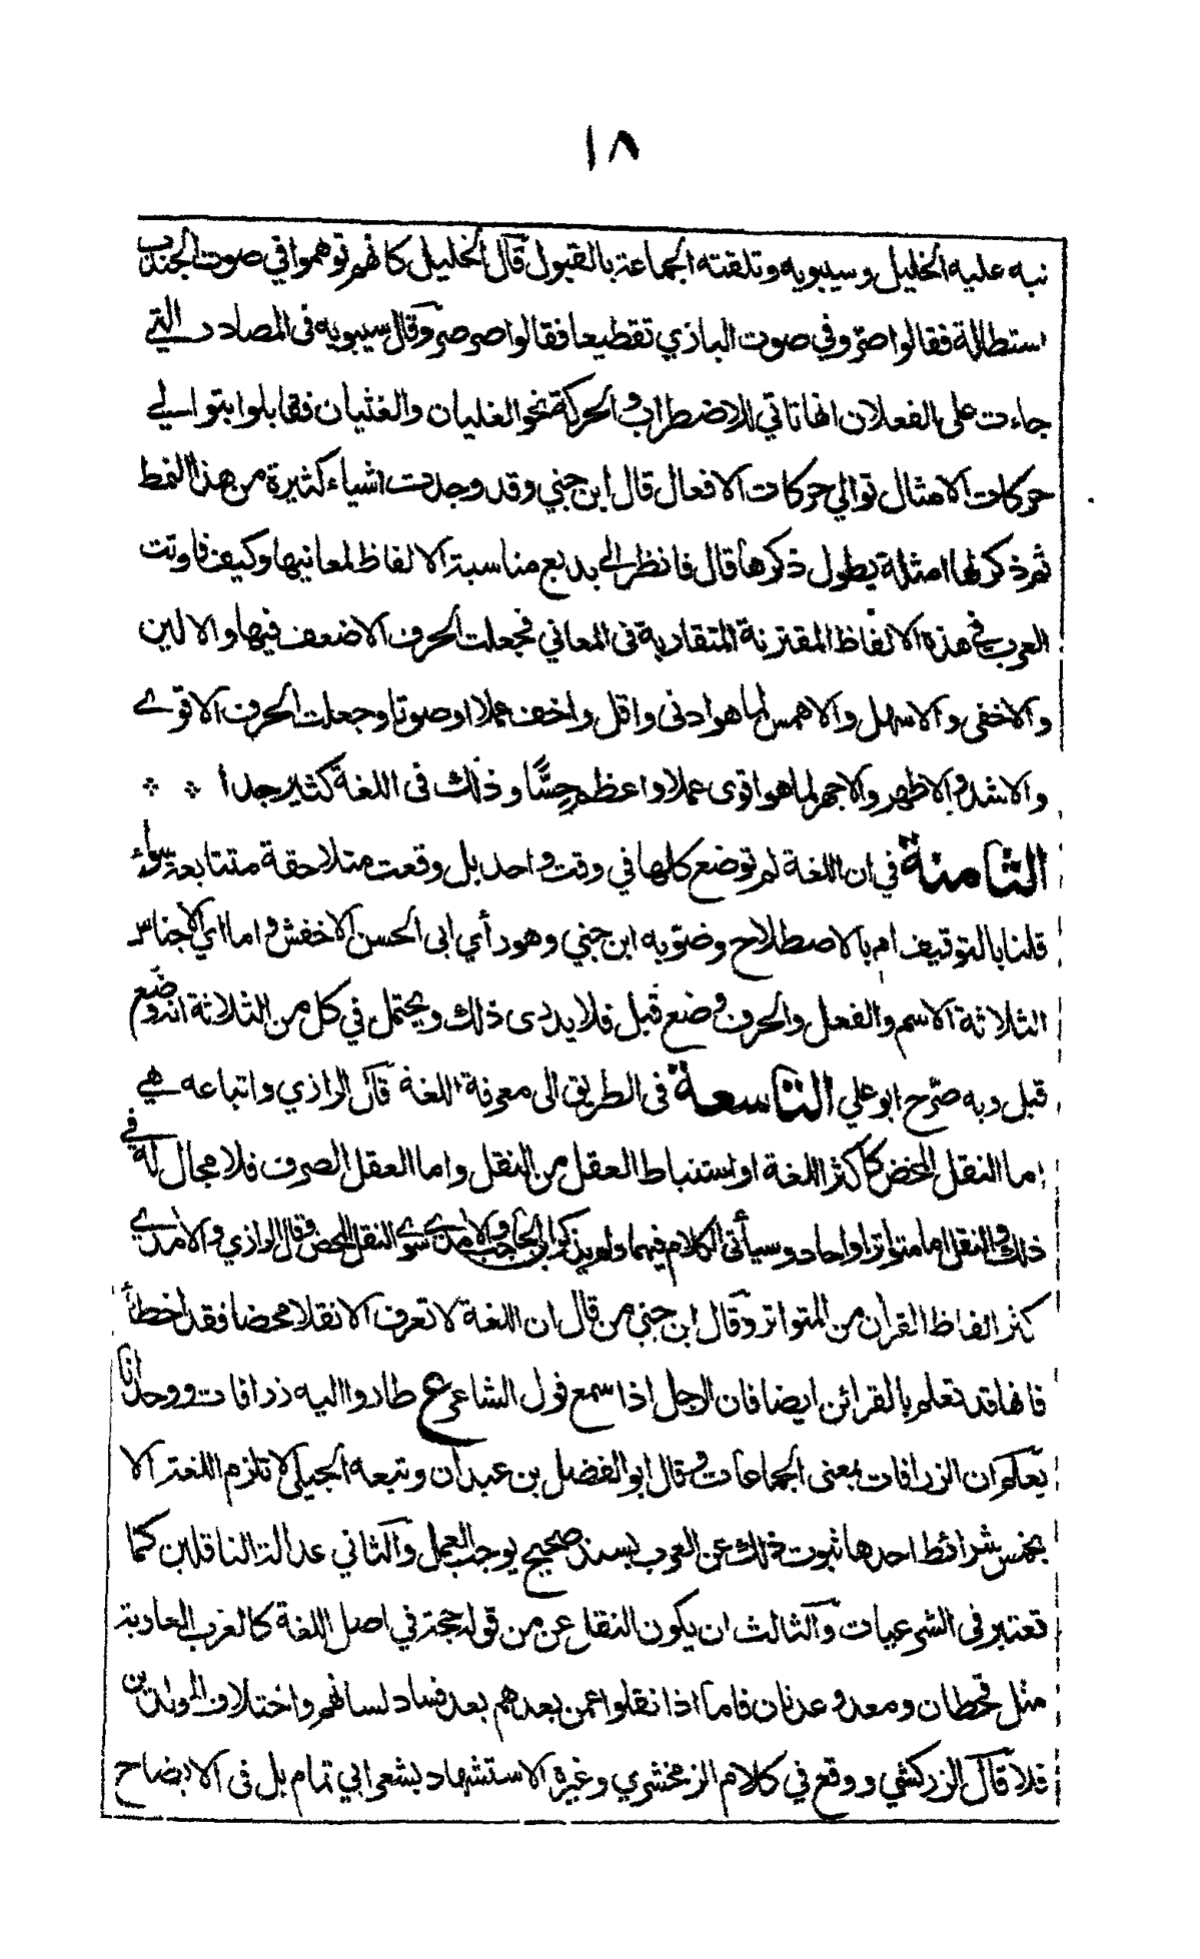 ١٨
نبه عليه الخليل وسيبويه وتلقته الجماعة بالقبول قال الخليل كانهم توهموا في صوت الجندب
استطالة فقالوا صرّ وفي صوت البازي تقطيعا فقالوا صرصر وقال سيبويه فى المصادر التي
جاءت على الفعلان انها تاتي للاضطراب والحركة نحو الغليان والغثيان فقابلوا بتوالي
حركات الامثال توالي حركات الافعال قال ابن جني وقد وجدت اشياء كثيرة من هذا النمط
ثم ذكر لها امثلة يطول ذكرها قال فانظر الى بديع مناسبة الالفاظ لمعانيها وكيف فاوتت
العرب في هذه الالفاظ المقترنة المتقاربة فى المعاني فجعلت الحرف الاضعف فيها والالين
والاخفى والاسهل والاهمس لما هو ادنى واقل واخف عملا او صوتا وجعلت الحرف الاقوى
والاشد والاظهر والاجهر لما هو اقوى عملا واعظم حِسًّا وذلك فى اللغة كثير جدا
الثامنة في ان اللغة لم توضع كلها في وقت واحد بل وقعت متلاحقة متتابعة سواء
قلنا بالتوقيف ام بالاصطلاح وضوّبه ابن جني وهو رأي ابى الحسن الاخفش واما اي الاجناس
الثلاثة الاسم والفعل والحرف وضع قبل فلا يدرى ذلك ويحتمل في كل من الثلاثة انه وضع
قبل وبه صرّح ابو علي التاسعة فى الطريق الى معرفة اللغة قال الرازي واتباعه هي
اما النقل المحض كاكثر اللغة او استنباط العقل من النقل واما العقل الصرف فلا مجال له في
ذلك والنقل اما متواتر او احاد وسيأتى الكلام فيهما ولم يذكر ابن الحاجب والامدي سوى النقل المحض وقال الرازي والامدي
كثر الفاظ القران من المتواتر وقال ابن جني من قال ان اللغة لا تعرف الا نقلا محضا فقد اخطأ
فانها قد تعلم بالقرائن ايضا فان الرجل اذا سمع قول الشاعر ع طاروا اليه زرافات ووحدانا
يعلم ان الزرافات بمعنى الجماعات وقال ابو الفضل بن عبدان وتبعه الجيلي لا تلزم اللغة الا
بخمس شرائط احدها ثبوت ذلك عن العرب بسند صحيح يوجب العمل والثاني عدالة الناقلين كما
تعتبر فى الشرعيات والثالث ان يكون النقل عن من قوله حجة في اصل اللغة كالعرب العاربة
مثل قحطان ومعد وعدنان فاما اذا نقلوا عمن بعدهم بعد فساد لسانهم واختلاف المولدين
فلا قال الزركشي ووقع في كلام الزمخشري وغيره الاستشهاد بشعر ابي تمام بل فى الايضاح